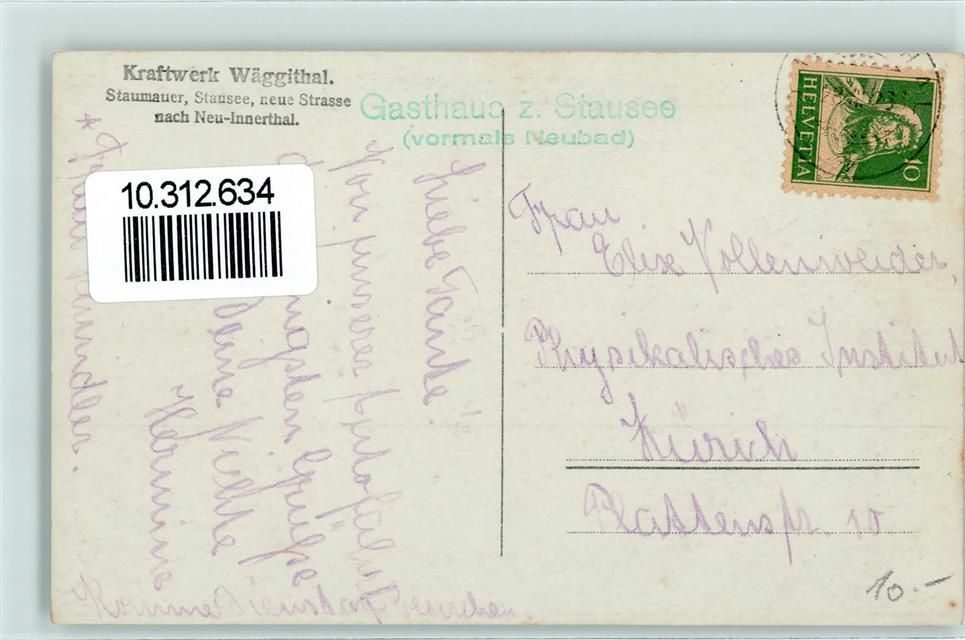 Kraftwerk Wäggithal.
Staumauer, Stausee, neue Strasse
nach Neu-Innerthal.
Gasthaus z. Stausee
(vormals Neubad)
HELVETIA
10
10.312.634
Liebe Tante!
Von unserer
Grüße
Deine Nichte
Hermine
Komme Dienstag
Frau
Elise Vollenweider,
Physikalisches Institut
Zürich
Plattenstr 10
10.-